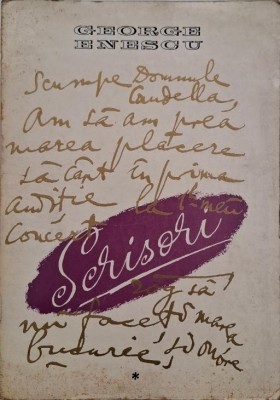 GEORGE
ENESCU
Scumpe Domnule
Caudella,
Am să am prea
marea plăcere
să cânt în prima
audiție la 1ul meu
Concert
Scrisori
rog să
mi faceți marea
bucurie, și onore
*